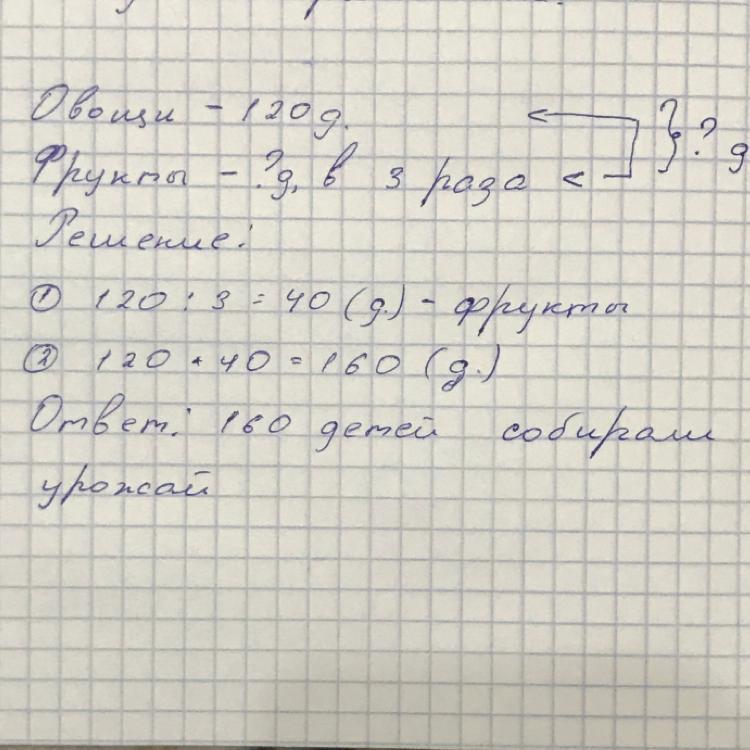 Овощи - 120 д. } ? д
Фрукты - ? д, в 3 раза <
Решение:
① 120 : 3 = 40 (д.) - фрукты
② 120 + 40 = 160 (д.)
Ответ: 160 детей собирали
урожай